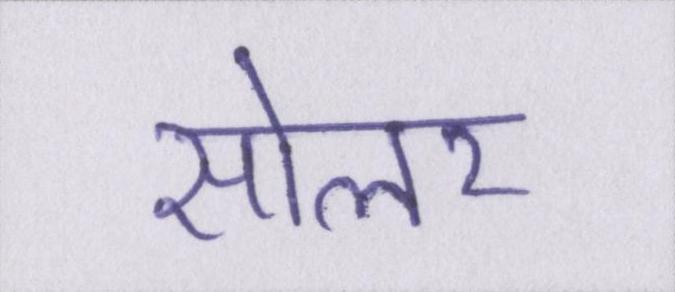 सोलर